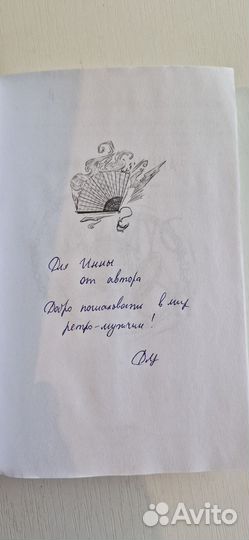 Для Инны
от автора
Добро пожаловать в мир
ретро-мужчин!
Avito